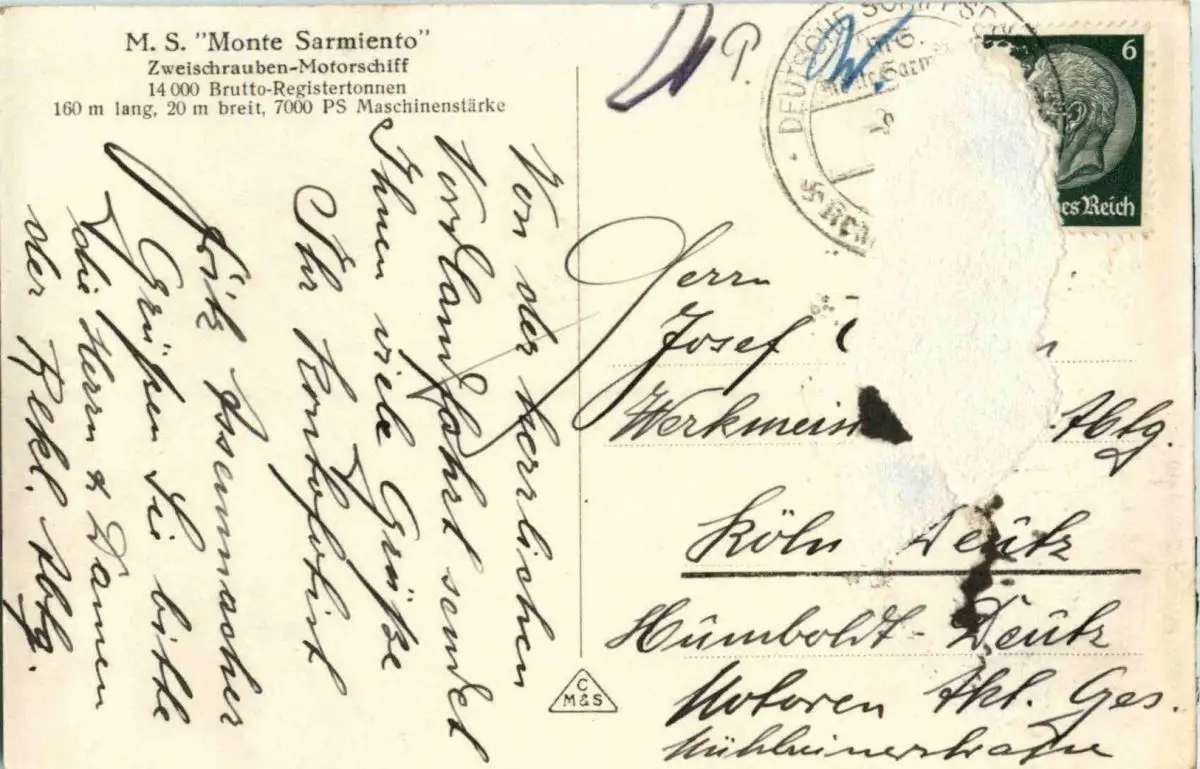 M. S. "Monte Sarmiento"
Zweischrauben-Motorschiff
14 000 Brutto-Registertonnen
160 m lang, 20 m breit, 7000 PS Maschinenstärke
Von der herrlichen
Norlandfahrt sendet
Ihnen viele Grüße
Ihr
Fritz Assenmacher
Grüßen Sie bitte
die Herrn & Damen
der Rekl. Abtg.
C
M&S
P.
DEUTSCHE SCHIFFSP
M.S.
6
es Reich
Herrn
Josef
Abtg.
Köln Deutz
Humboldt-Deutz
Motoren Akt. Ges.
Mülheimerstrasse